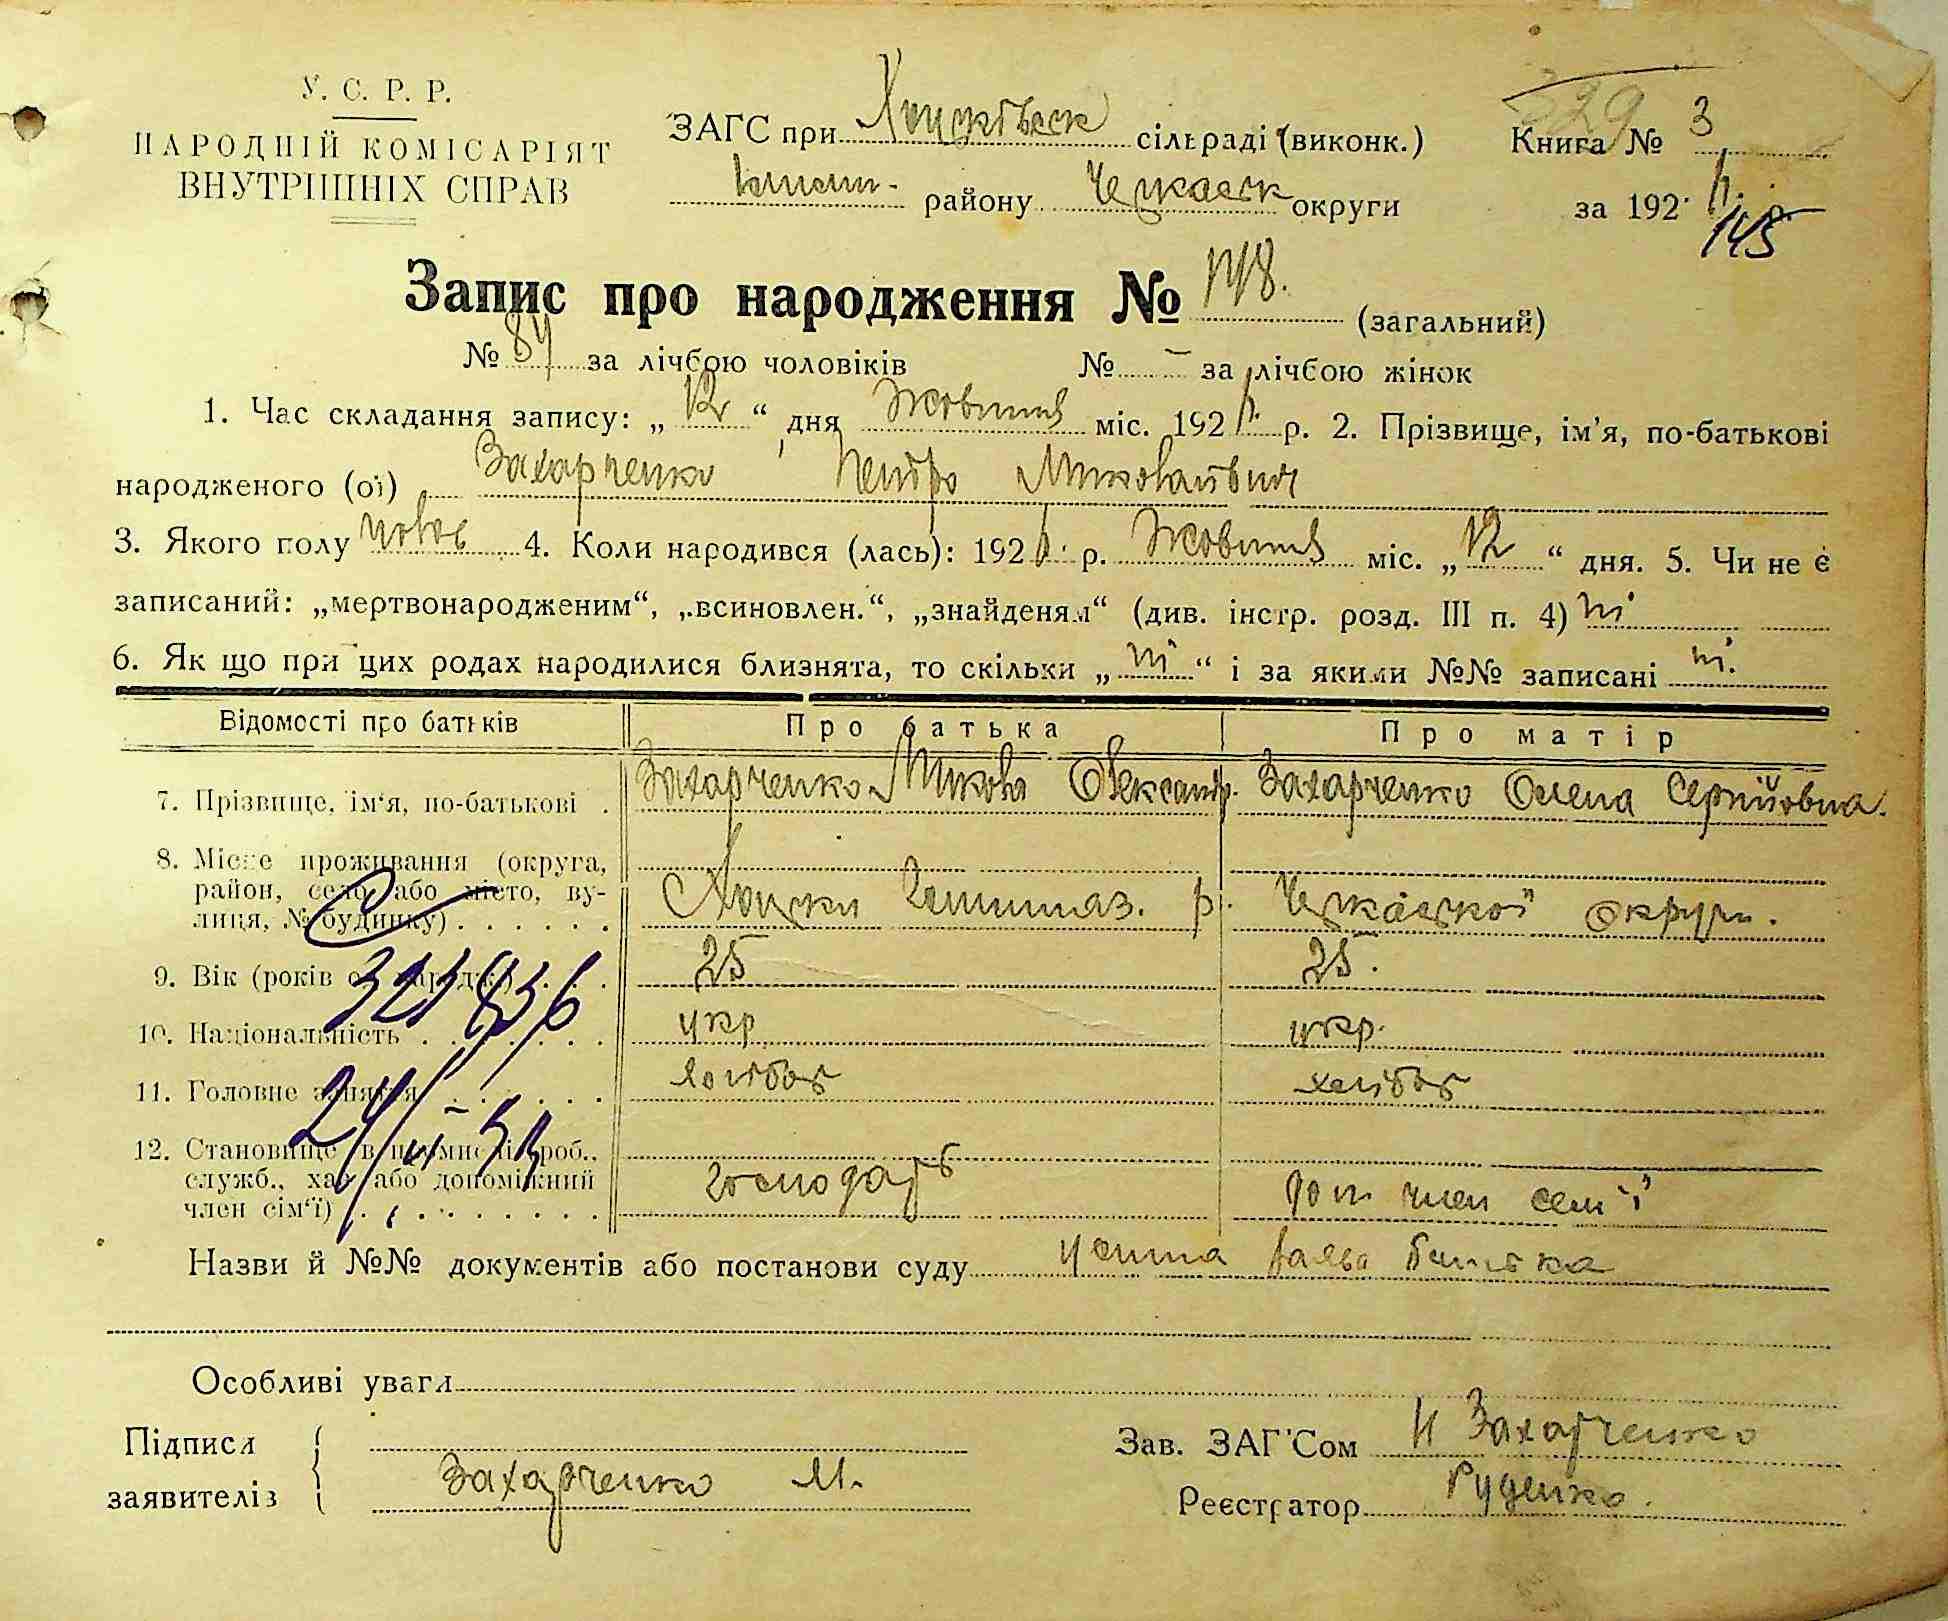 У. С. Р. Р.
НАРОДНІЙ КОМІСАРІЯТ
ВНУТРІШНІХ СПРАВ
ЗАГС при Хоцківськ сільраді (виконк.)
району Черкаськ округи
Книга № 3
за 192 р.
145
Запис про народження № 178. (загальний)
№ 84 за лічбою чоловіків № – за лічбою жінок
1. Час складання запису: „ 12 “ дня Жовтня міс. 192 р. 2. Прізвище, ім'я, по-батькові
народженого (ої) Захарченко Петро Миколайович
3. Якого полу чолов 4. Коли народився (лась): 192 р. Жовтня міс. „ 12 “ дня. 5. Чи не є
записаний: „мертвонародженим“, „всиновлен.“, „знайденям“ (див. інстр. розд. III п. 4) ні
6. Як що при цих родах народилися близнята, то скільки „ ні “ і за якими №№ записані ні.
Відомості про батьків Про батька Про матір
7. Прізвище, ім'я, по-батькові . Захарченко Микола Олександр. Захарченко Олена Сергійовна.
8. Місце проживання (округа,
район, село або місто, ву-
лиця, № будинку) . . . . . . Хоцьки р. Черкаської округи.
9. Вік (років від народж.) . . . 25 25.
10. Національність . . . . . . . укр укр.
11. Головне заняття . . . . . . хлібор хлібор
12. Становище в промислі (роб.,
служб., хаз. або допоміжний
член сім'ї) . . . . . . . . . господарь доп член семʼї
Назви й №№ документів або постанови суду усна заява батька
Особливі уваги
Підписи
заявителів Захарченко М.
Зав. ЗАГС'ом Захарченко
Реєстратор Руденко.